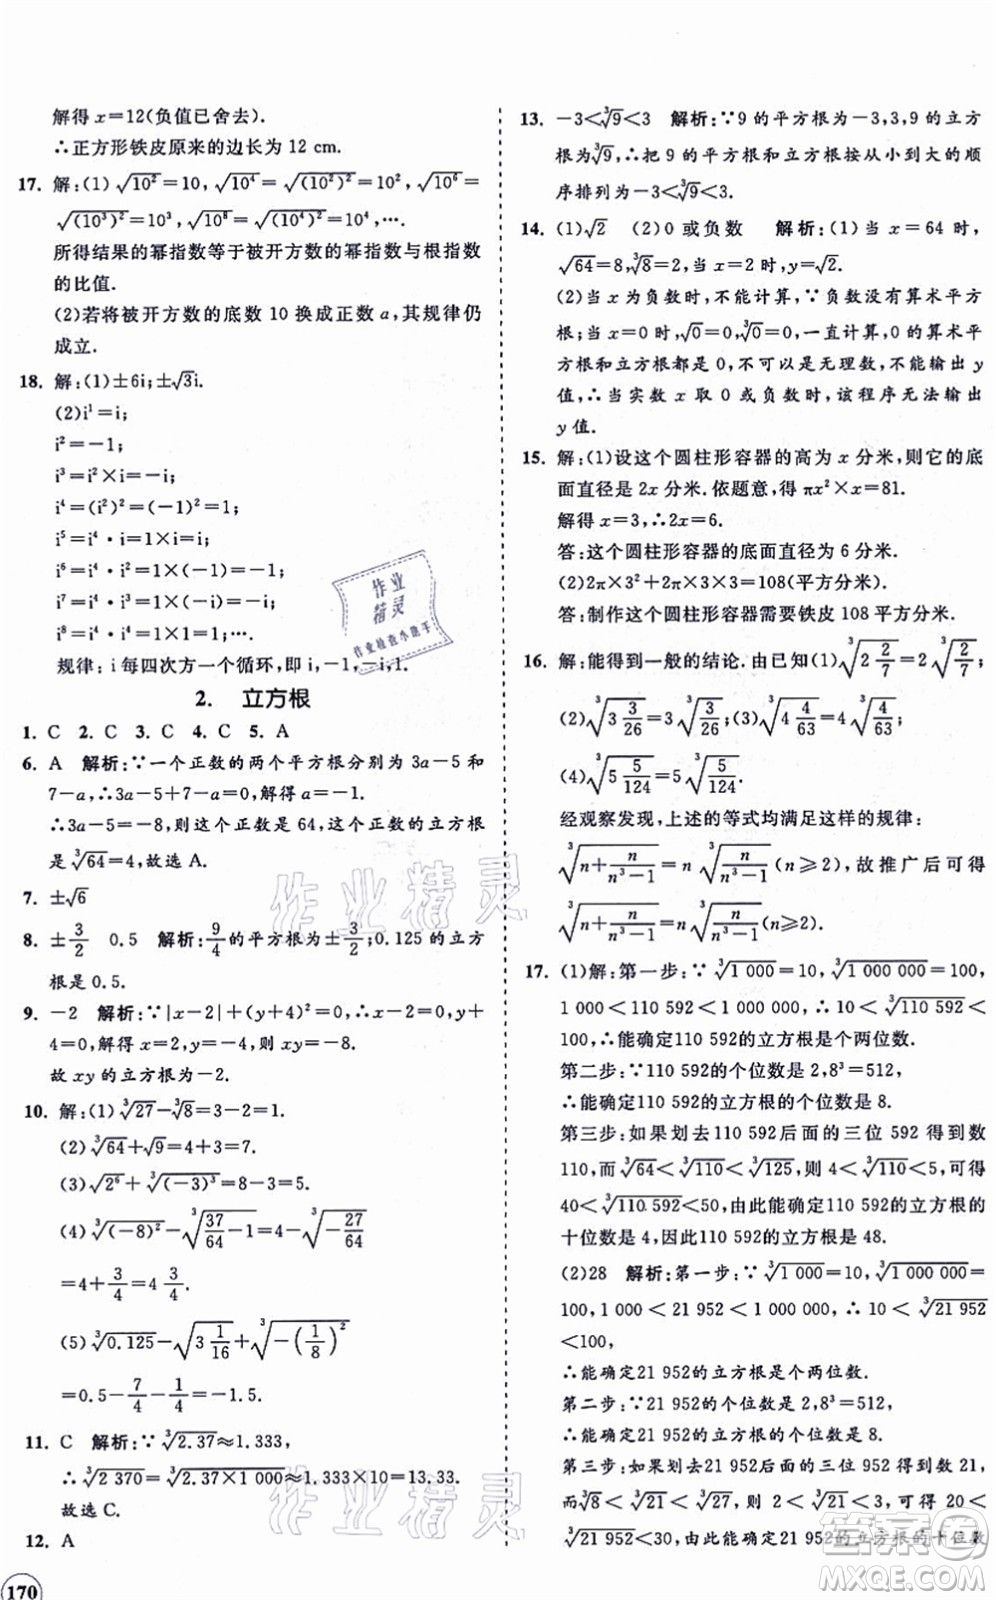 解得 x=12(负值已舍去).
∴正方形铁皮原来的边长为 12 cm.
17. 解:(1)√(10²)=10,√(10⁴)=√((10²)²)=10²,√(10⁶)=
√((10³)²)=10³,√(10⁸)=√((10⁴)²)=10⁴,….
所得结果的幂指数等于被开方数的幂指数与根指数
的比值.
(2)若将被开方数的底数 10 换成正数 a,其规律仍
成立.
18. 解:(1)±6i;±√3i.
(2)i¹=i;
i²=-1;
i³=i²×i=-1×i=-i;
i⁴=(i²)²=(-1)²=1;
i⁵=i⁴·i=1×i=i;
i⁶=i⁴·i²=1×(-1)=-1;
i⁷=i⁴·i³=1×(-i)=-i;
i⁸=i⁴·i⁴=1;….
规律:i 每四次方一个循环,即 i,-1,-i,1.
2. 立方根
1. C 2. C 3. C 4. C 5. A
6. A 解析:∵一个正数的两个平方根分别为 3a-5 和
7-a,∴3a-5+7-a=0,解得 a=-1.
∴3a-5=-8,则这个正数是 64,这个正数的立方根
是∛64=4,故选 A.
7. ±√6
8. ±3/2 0.5 解析:9/4的平方根为±3/2;0.125 的立方
根是 0.5.
9. -2 解析:∵|x-2|+(y+4)²=0,∴x-2=0,y+4
=0,解得 x=2,y=-4,则 xy=-8.
故 xy 的立方根为-2.
10. 解:(1)∛27-∛8=3-2=1.
(2)∛64+√9=4+3=7.
(3)√(2⁶)+∛((-3)³)=8-3=5.
(4)∛((-8)²)-∛(37/64-1)=4-∛(-27/64)
=4+3/4=4 3/4.
(5)∛0.125-√(3 1/16)+∛(-(1/8)²)
=0.5-7/4-1/4=-1.5.
11. C 解析:∵∛2.37≈1.333,
∴∛2 370=∛(2.37×1 000)≈1.333×10=13.33.
故选 C.
12. A
170
13. -3<∛9<3 解析:∵9 的平方根为-3,3,9 的立方
根为∛9,∴把 9 的平方根和立方根按从小到大的顺
序排列为-3<∛9<3.
14. (1)√2 (2)0 或负数 解析:(1)当 x=64 时,
√64=8,∛8=2,当 x=2 时,y=√2.
(2)当为负数时,不能计算,∵负数没有算术平方
根;当 x=0 时,√0=0,∛0=0,一直计算,0 的算术平
方根和立方根都是 0,不可以是无理数,不能输出 y
值,∴当实数 x 取 0 或负数时,该程序无法输出
y 值.
15. 解:(1)设这个圆柱形容器的高为 x 分米,则它的底
面直径是 2x 分米.依题意,得 πx²×x=81.
解得 x=3,∴2x=6.
答:这个圆柱形容器的底面直径为 6 分米.
(2)2π×3²+2π×3×3=108(平方分米).
答:制作这个圆柱形容器需要铁皮 108 平方分米.
16. 解:能得到一般的结论.由已知(1)∛(2 2/7)=2∛(2/7);
(2)∛(3 3/26)=3∛(3/26);(3)∛(4 4/63)=4∛(4/63);
(4)∛(5 5/124)=5∛(5/124).
经观察发现,上述的等式均满足这样的规律:
∛(n+n/(n³-1))=n∛(n/(n³-1))(n≥2),故推广后可得
∛(n+n/(n³-1))=n∛(n/(n³-1))(n≥2).
17. (1)解:第一步:∵∛1 000=10,∛1 000 000=100,
1 000<110 592<1 000 000,∴10<∛110 592<
100,∴能确定110 592的立方根是个两位数.
第二步:∵110 592的个位数是 2,8³=512,
∴能确定110 592的立方根的个位数是 8.
第三步:如果划去110 592后面的三位 592 得到数
110,而∛64<∛110<∛125,则 4<∛110<5,可得
40<∛110 592<50,由此能确定110 592的立方根的
十位数是 4,因此110 592的立方根是 48.
(2)28 解析:第一步:∵∛1 000=10,∛1 000 000=
100,1 000<21 952<1 000 000,∴10<∛21 952
<100,
∴能确定21 952的立方根是个两位数.
第二步:∵21 952的个位数是 2,8³=512,
∴能确定21 952的立方根的个位数是 8.
第三步:如果划去21 952后面的三位 952 得到数 21,
而∛8<∛21<∛27,则 2<∛21<3,可得 20<
∛21 952<30,由此能确定21 952的立方根的十位数
作业精灵
作业检查小助手
作业精灵
作业精灵
答案圈
MXQE.COM